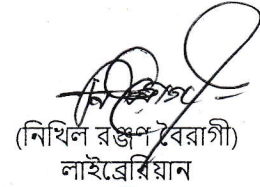 (নিখিল রঞ্জণ বৈরাগী)
লাইব্রেরিয়ান